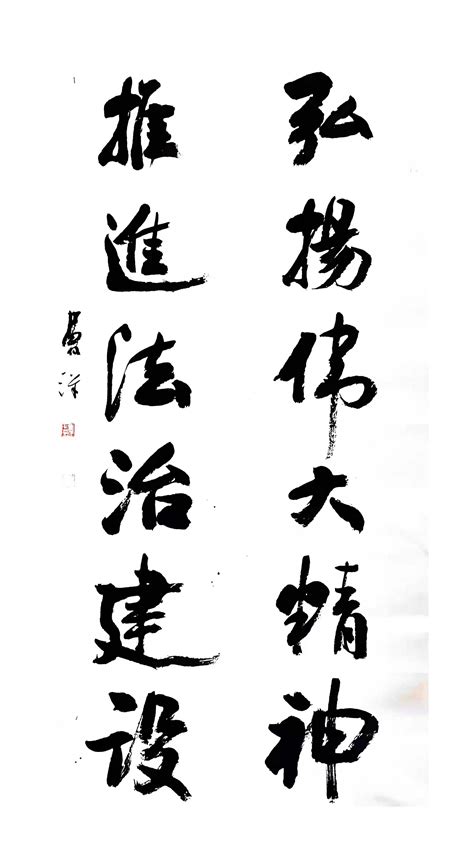 弘揚偉大精神
推進法治建设